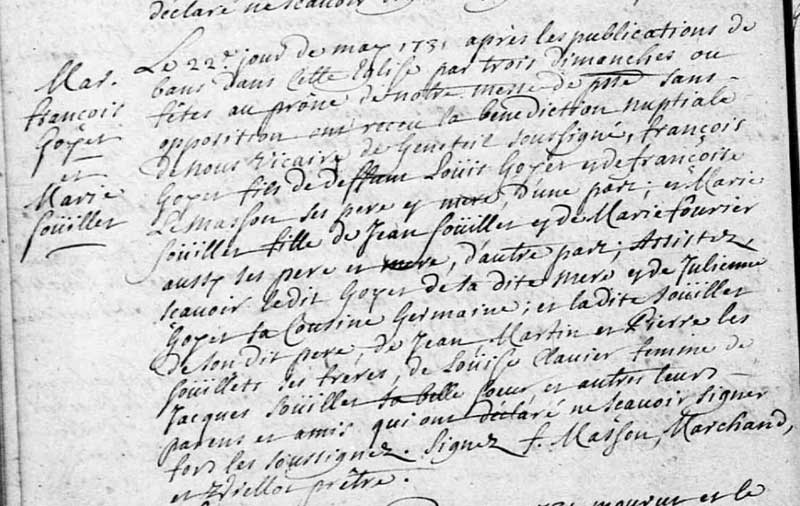 declaré ne scavoir
Mar.
françois
Goyet
et
Marie
Soüillet
Le 22.e jour de may 1731 après les publications de
bans dans cette Eglise par trois dimanches ou
fêtes au prône de notre messe de sans
opposition ont receu la bénédiction nuptiale
de nous Vicaire de Geneteil soussigné, françois
Goyet fils de deffunt Loüis Goyet et de françoise
Le Masson ses pere et mere, d'une part; et Marie
Soüillet fille de Jean Soüillet et de Marie fourier
aussy ses pere et mere, d'autre part; Assistez,
scavoir ledit Goyet de sa dite mere et de Julienne
Goyet sa Cousine Germaine; et la dite Soüillet
de son dit pere, de Jean Martin et Pierre les
Soüillets ses freres, de Loüise Clavier femme de
Jacques Soüillet sa belle soeur, et autres leurs
parens et amis qui ont déclaré ne scavoir signer
fors les soussignez. Signez f. Masson, Marchand,
et prêtre.
mourut et le